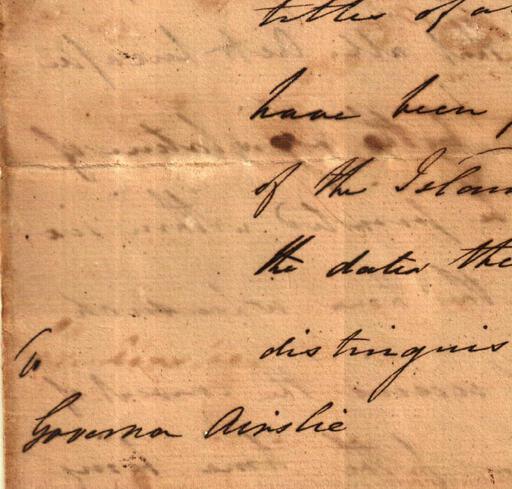 titles of a
have been
of the Islan
the dates the
distinguis
To
Governor Ainslie